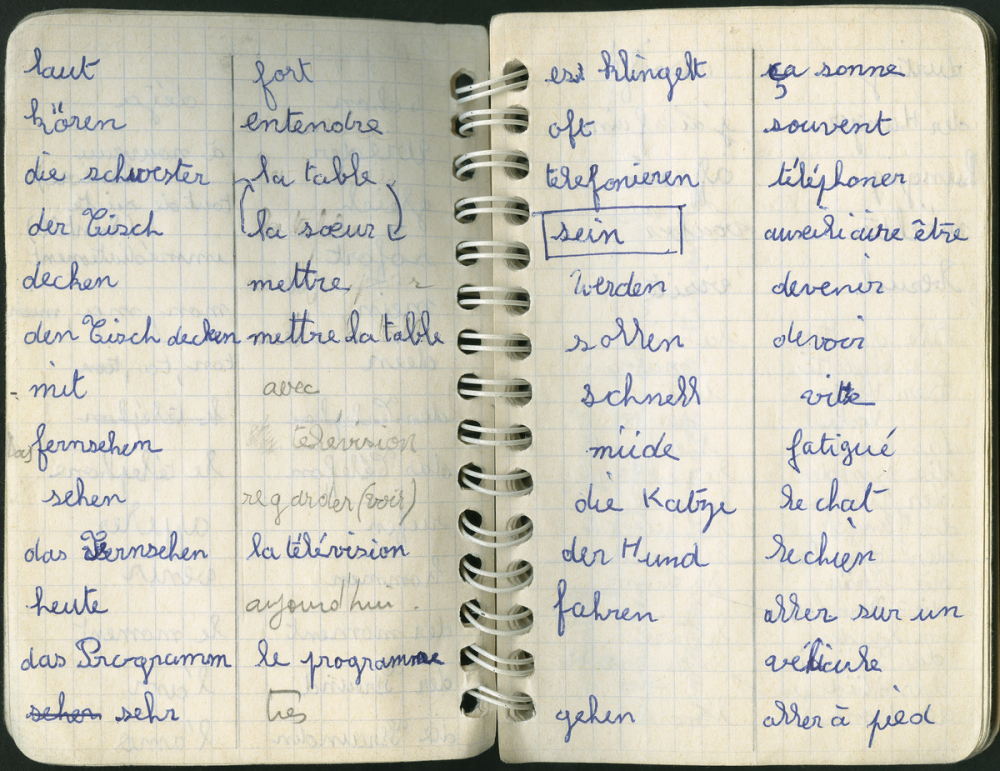 laut fort
hören entendre
die schwester la table
der Tisch la sœur
decken mettre
den Tisch decken mettre la table
mit avec
das fernsehen télévision
sehen regarder (voir)
das Fernsehen la télévision
heute aujourd'hui.
das Programm le programme
sehen sehr très
est klingelt ça sonne
oft souvent
telefonieren téléphoner
sein auxiliaire être
werden devenir
sollen devoir
schnell vite
müde fatigué
die Katze le chat
der Hund le chien
fahren aller sur un
véhicule
gehen aller à pied